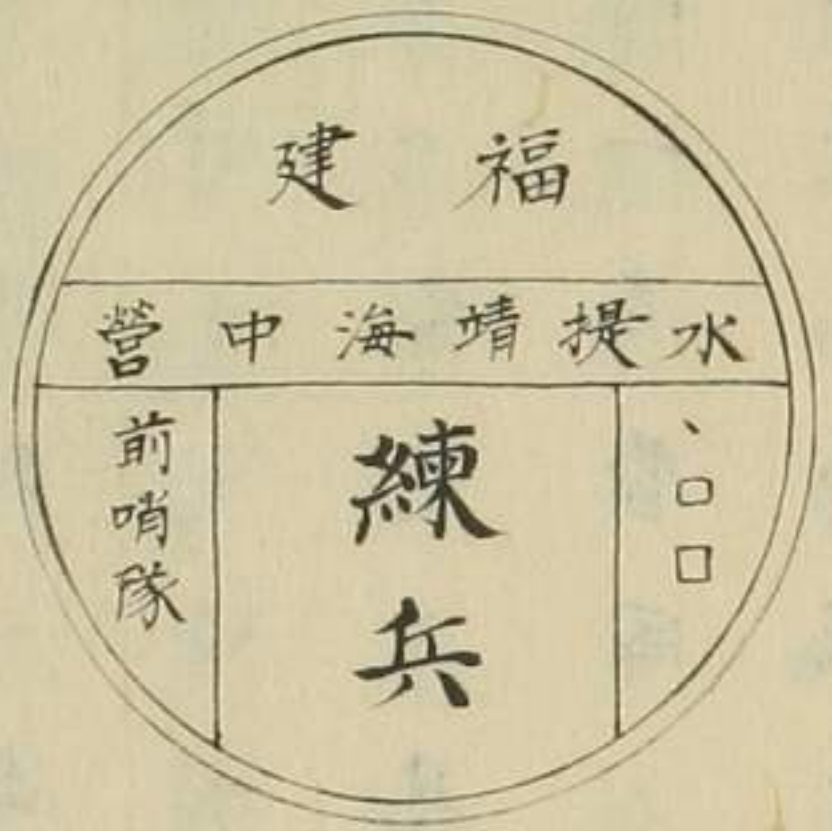 福建
水提靖海中營
、□□
練兵
前哨隊